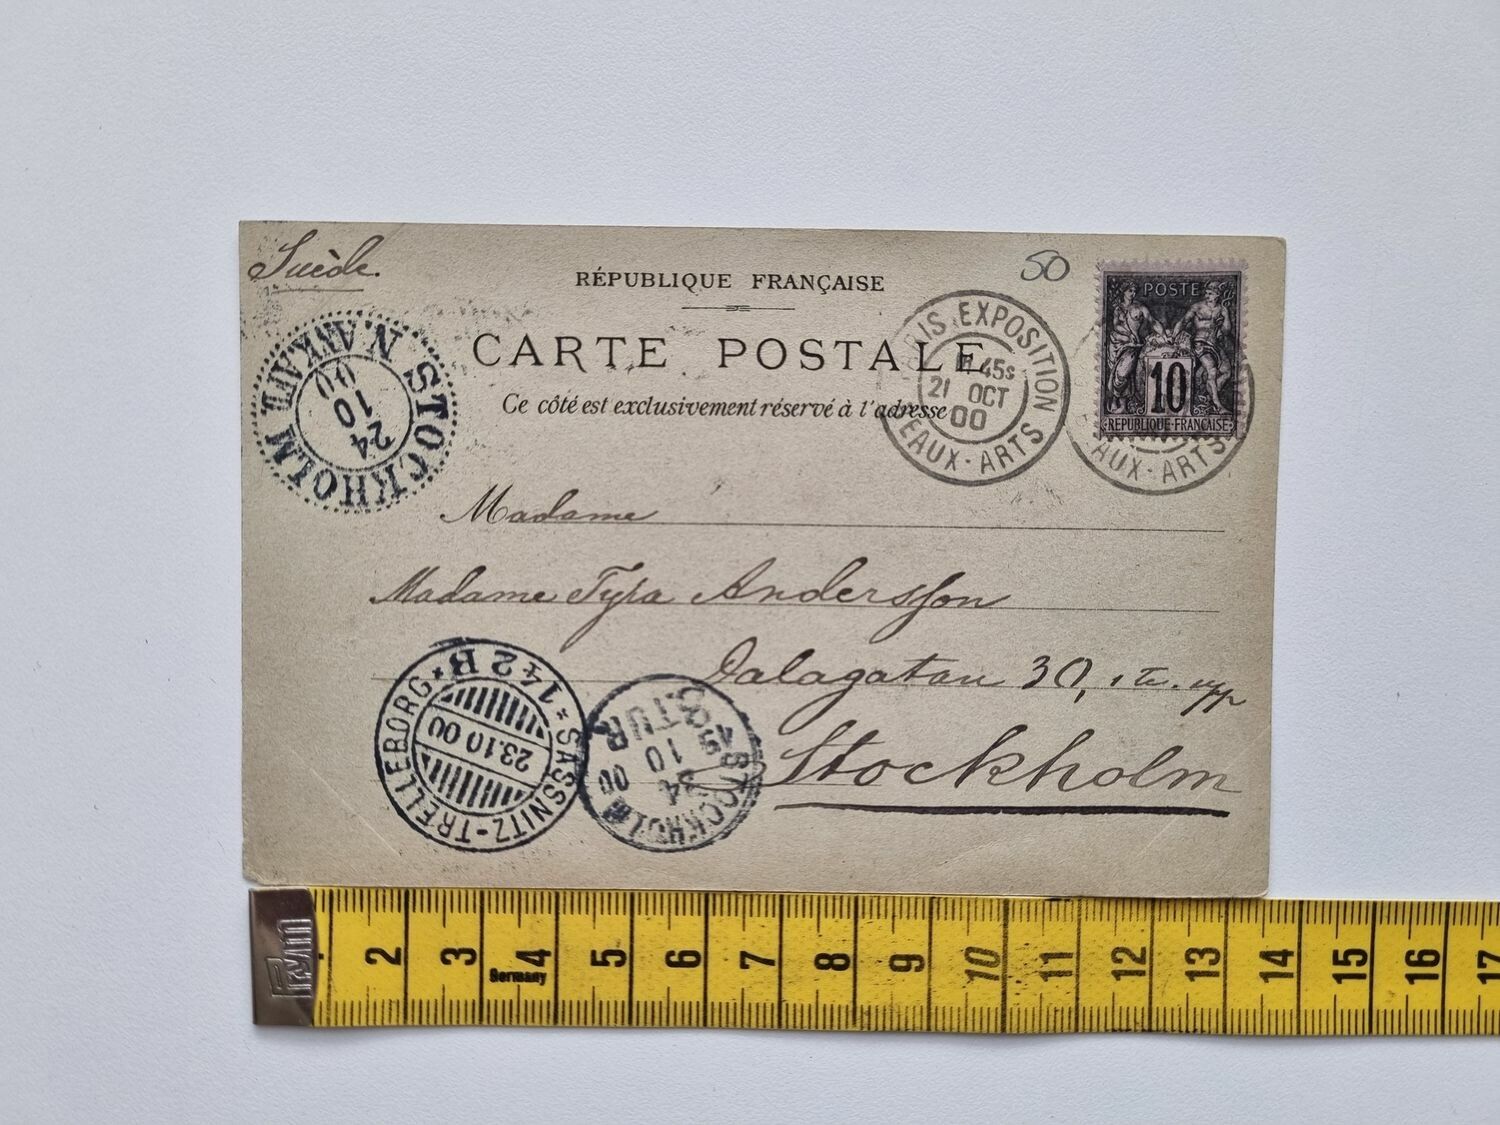 Suède.
50
RÉPUBLIQUE FRANÇAISE
POSTE
10
REPUBLIQUE·FRANÇAISE
CARTE POSTALE
Ce côté est exclusivement réservé à l'adresse
EXPOSITION
45s
21 OCT
00
BEAUX-ARTS
AUX-ARTS
STOCKHOLM
N. ANK. AFD.
24
10
00
Madame
Madame Tyra Andersson
Dalagatan 30,
Stockholm
SASSNITZ-TRELLEBORG
142 B
23.10 00
STOCKHOLM
TUR
24
10
00
Prym
2 3 4 5 6 7 8 9 10 11 12 13 14 15 16 17
Germany